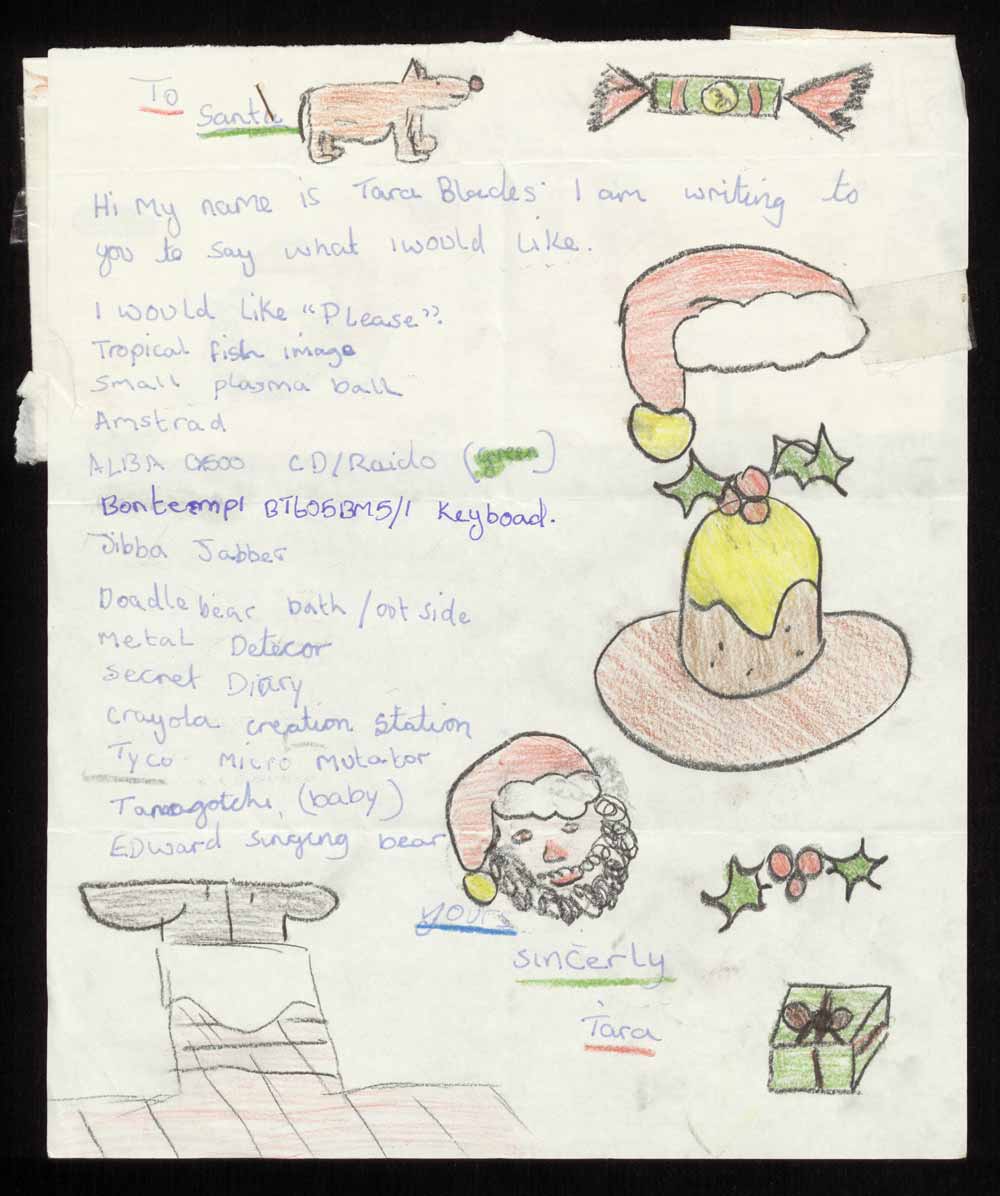 To
Santa
Hi My name is Tara Blades. I am writing to
you to say what I would like.
I would like "Please".
Tropical fish image
Small plasma ball
Amstrad
ALBA CD/Raido (green)
Bontempi BT605BM5/1 Keyboad.
Jibba Jabber
Doadle bear bath / out side
Metal Detecor
Secret Diary
Crayola creation Station
Tyco Micro Mutator
Tamagotchi (baby)
EDward singing bear
yours
sincerly
Tara